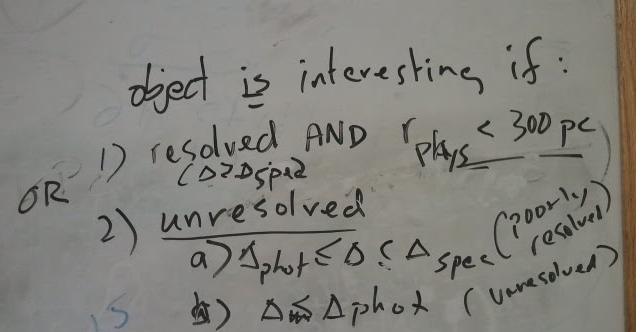 object is interesting if:
1) resolved AND r phys < 300 pc
(Δ>Δspec)
OR
2) unresolved
a) Δphot ≤ Δ ≤ Δspec (poorly resolved)
b) Δ ≤ Δphot (unresolved)